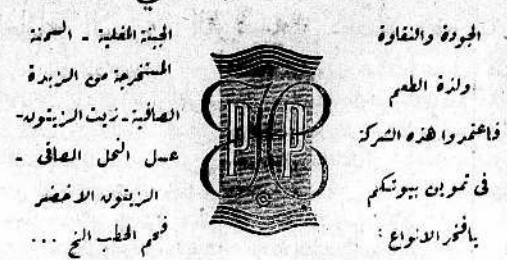 الجودة والنقاوة
ولذة الطعم
فاعتمدوا هذه الشركة
فى تموين بيوتكم
بافخر الانواع :
PP
الجبنة المغلية - السمنة
المستخرجة من الزبدة
الصافية - زيت الزيتون -
عسل النحل الصافى -
الزيتون الاخضر
فحم الحطب الخ ...